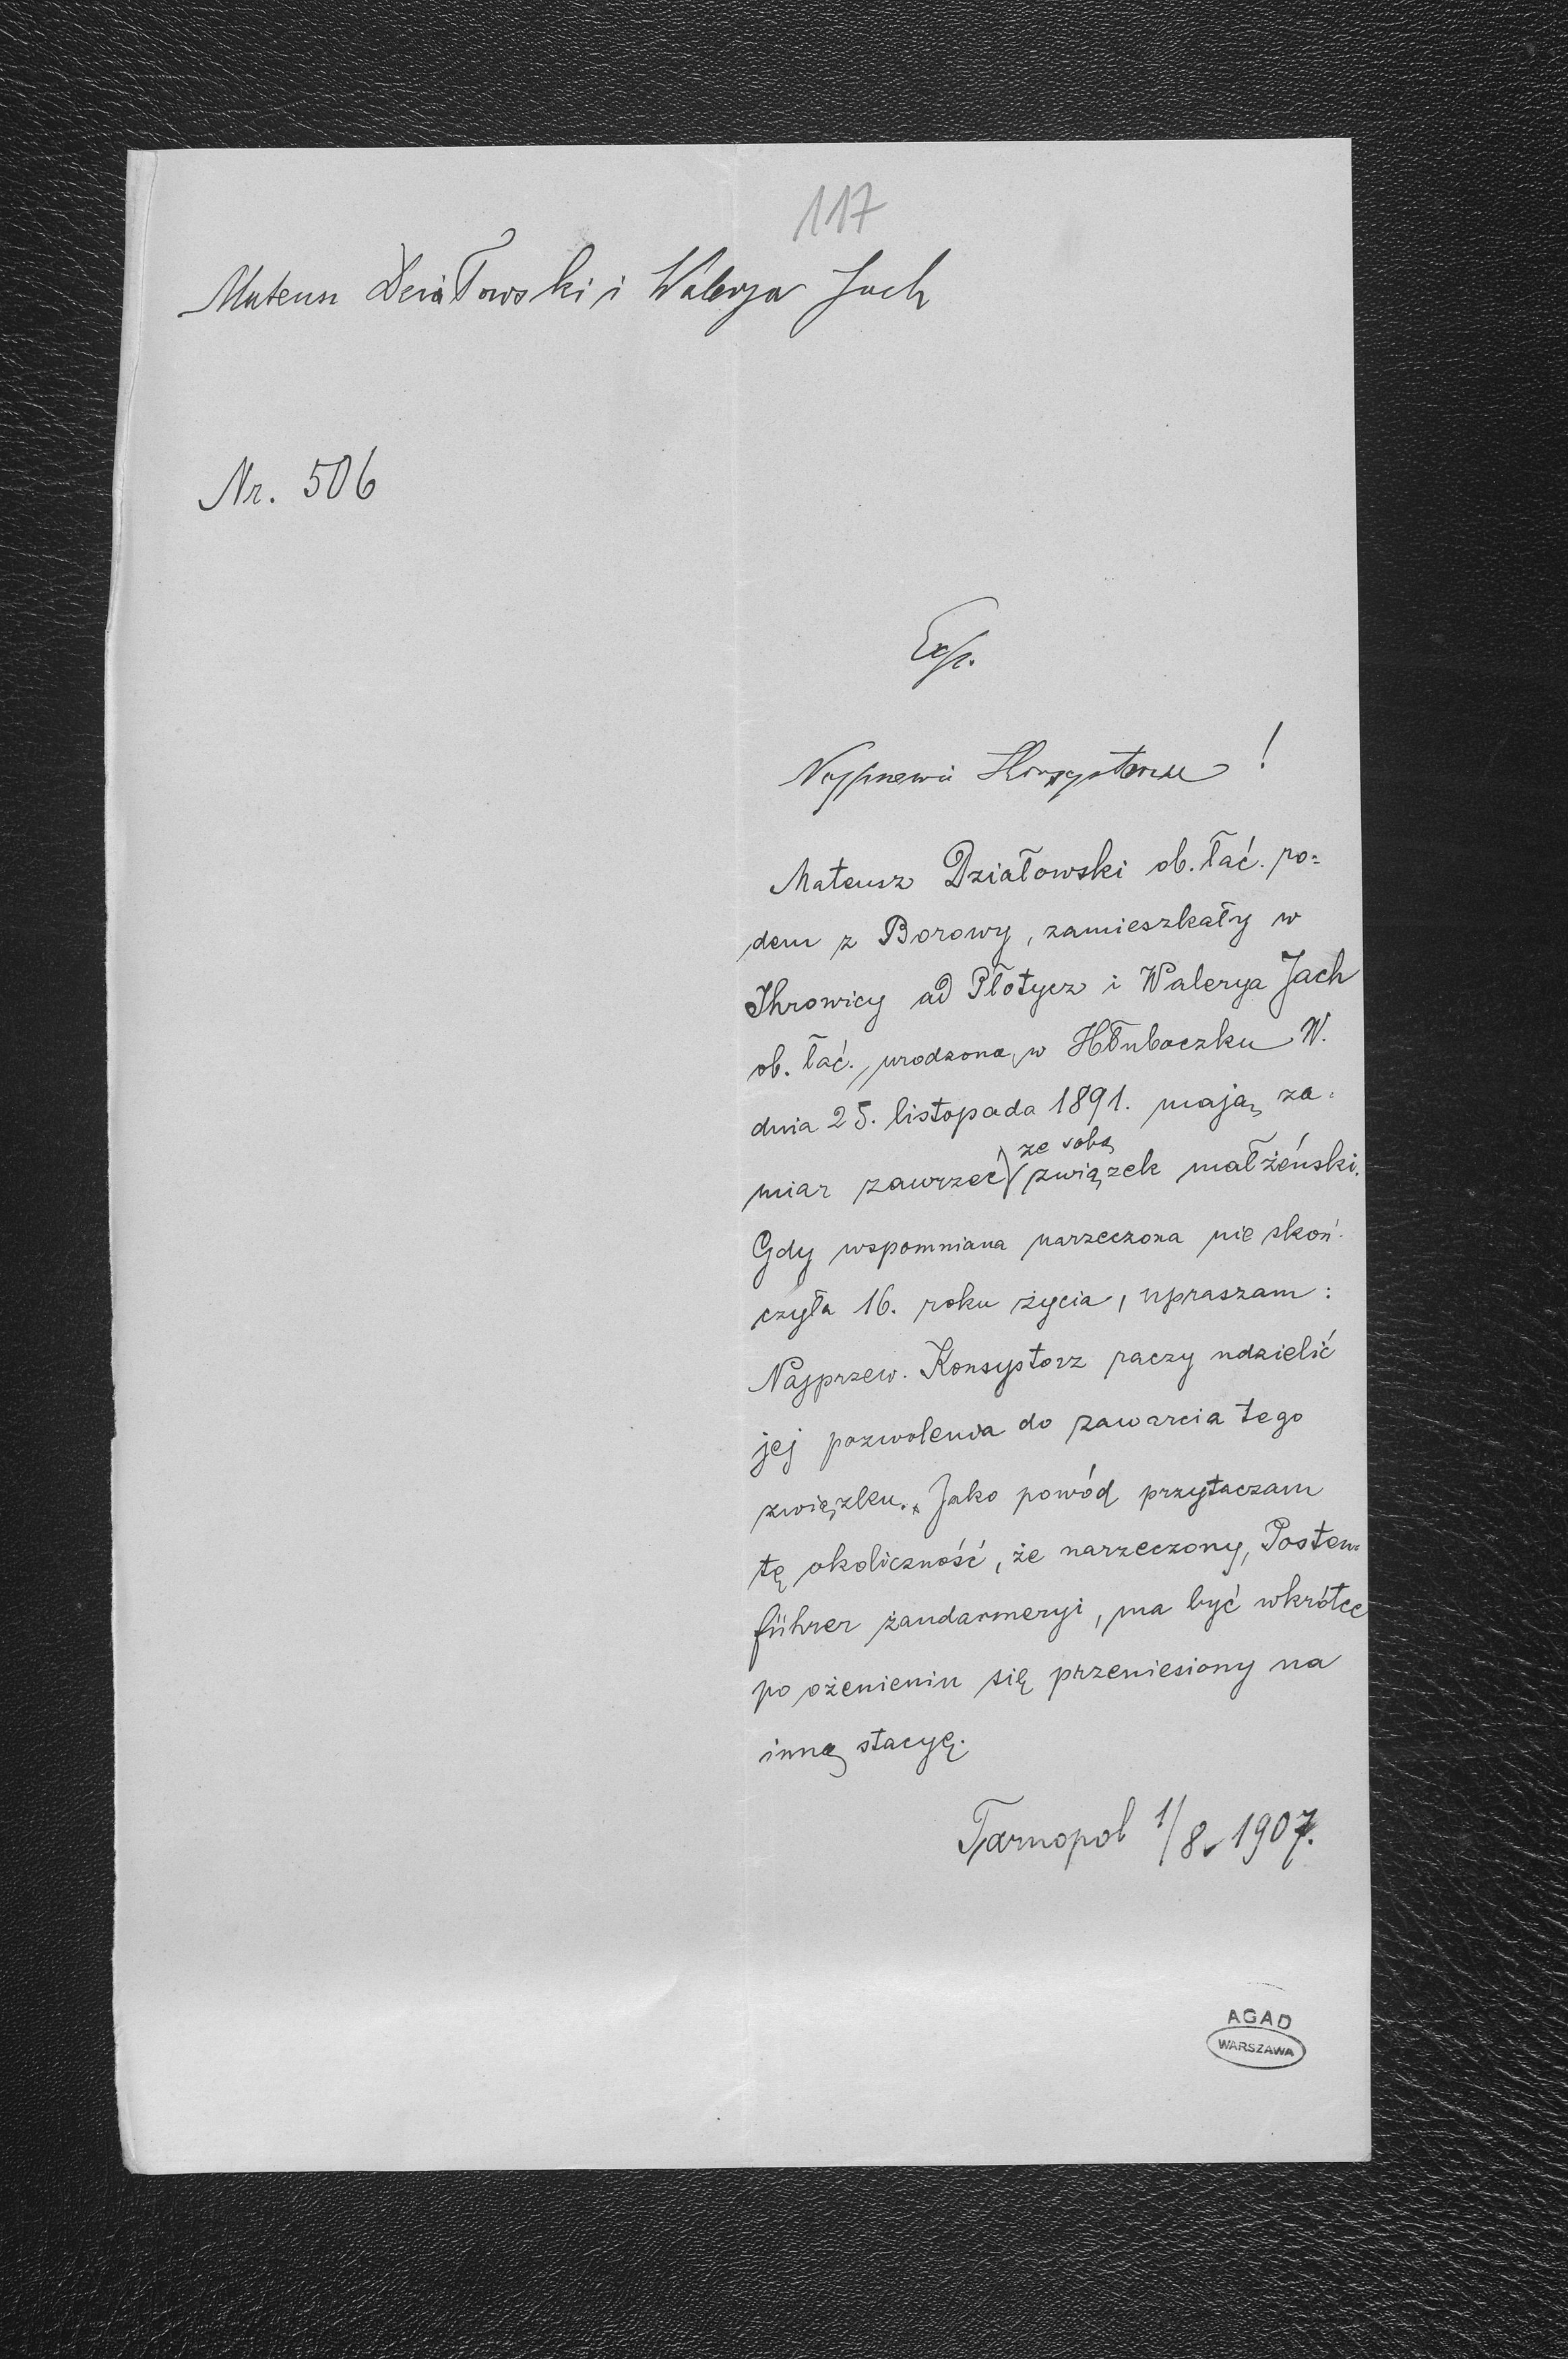 117
Mateusz Działowski i Walerya Jach
Nr. 506
Exp.
Najprzew. Konsystorzu !
Mateusz Działowski ob. łać. ro=
dem z Borowy, zamieszkały w
Ihrowicy ad Płotycz i Walerya Jach
ob. łać., urodzona w Hłuboczku W.
dnia 25. listopada 1891. mają za-
ze sobą
miar zawrzeć związek małżeński.
Gdy wspomniana narzeczona nie skoń-
czyła 16. roku życia, upraszam:
Najprzew. Konsystorz raczy udzielić
jej pozwolenia do zawarcia tego
związku. Jako powód przytaczam
tę okoliczność, że narzeczony, Posten=
führer żandarmeryi, ma być wkrótce
po ożenieniu się przeniesiony na
inną stacyę.
Tarnopol 1/8 1907.
AGAD
WARSZAWA